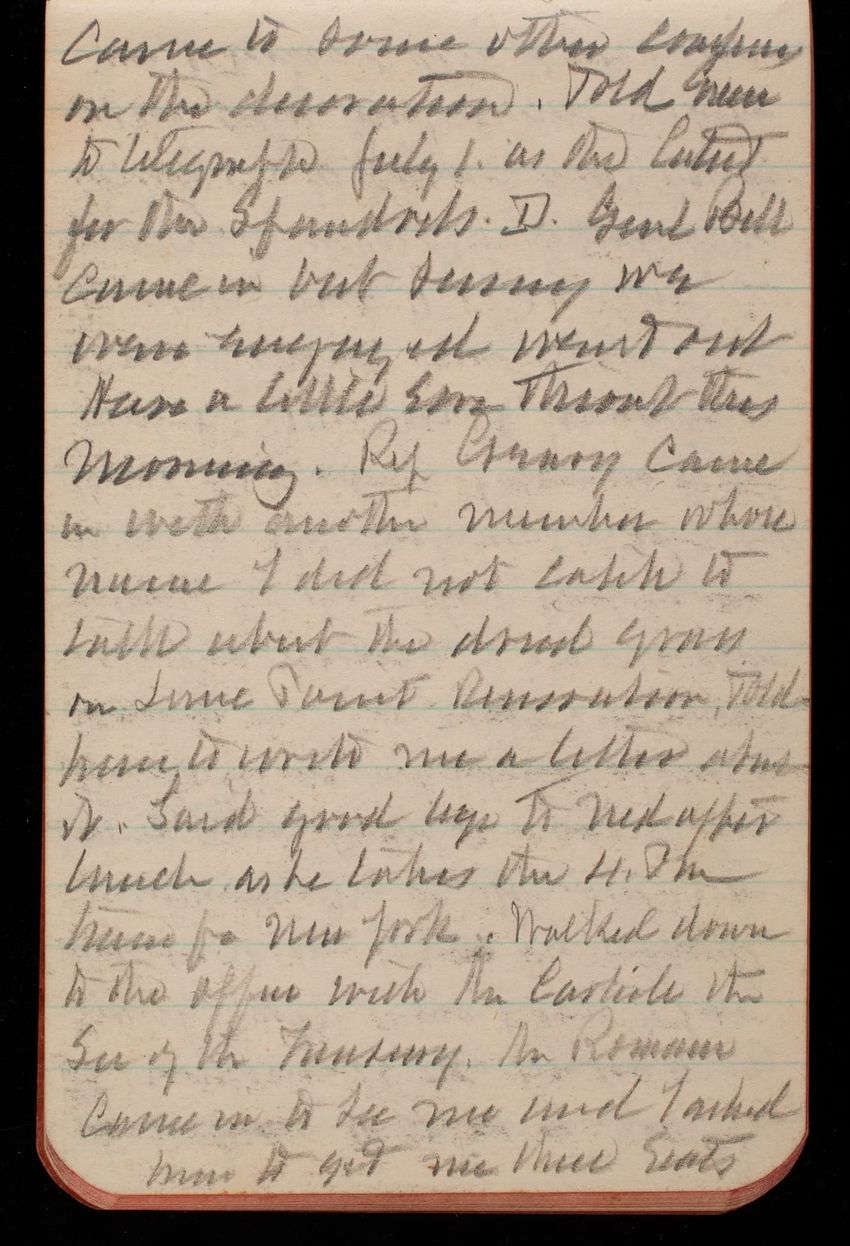 Came to some other
on the decoration. Told him
to telegraph July 1. as the latest
for the Spandrels. Genl Bell
came in but seeing we
were engaged went out
Have a little sore throat this
morning. Rep Geary came
in with another member whose
name I did not catch to
talk about the dried grass
on Lime Point Reservation, Told
him to write me a letter about
it. Said good bye to Ned after
lunch as he takes the 4. Pm
train for New York. Walked down
to the office with Mr Carlisle the
Sec of the Treasury. Mr Romaine
came in to see me and I asked
him to get me three seats